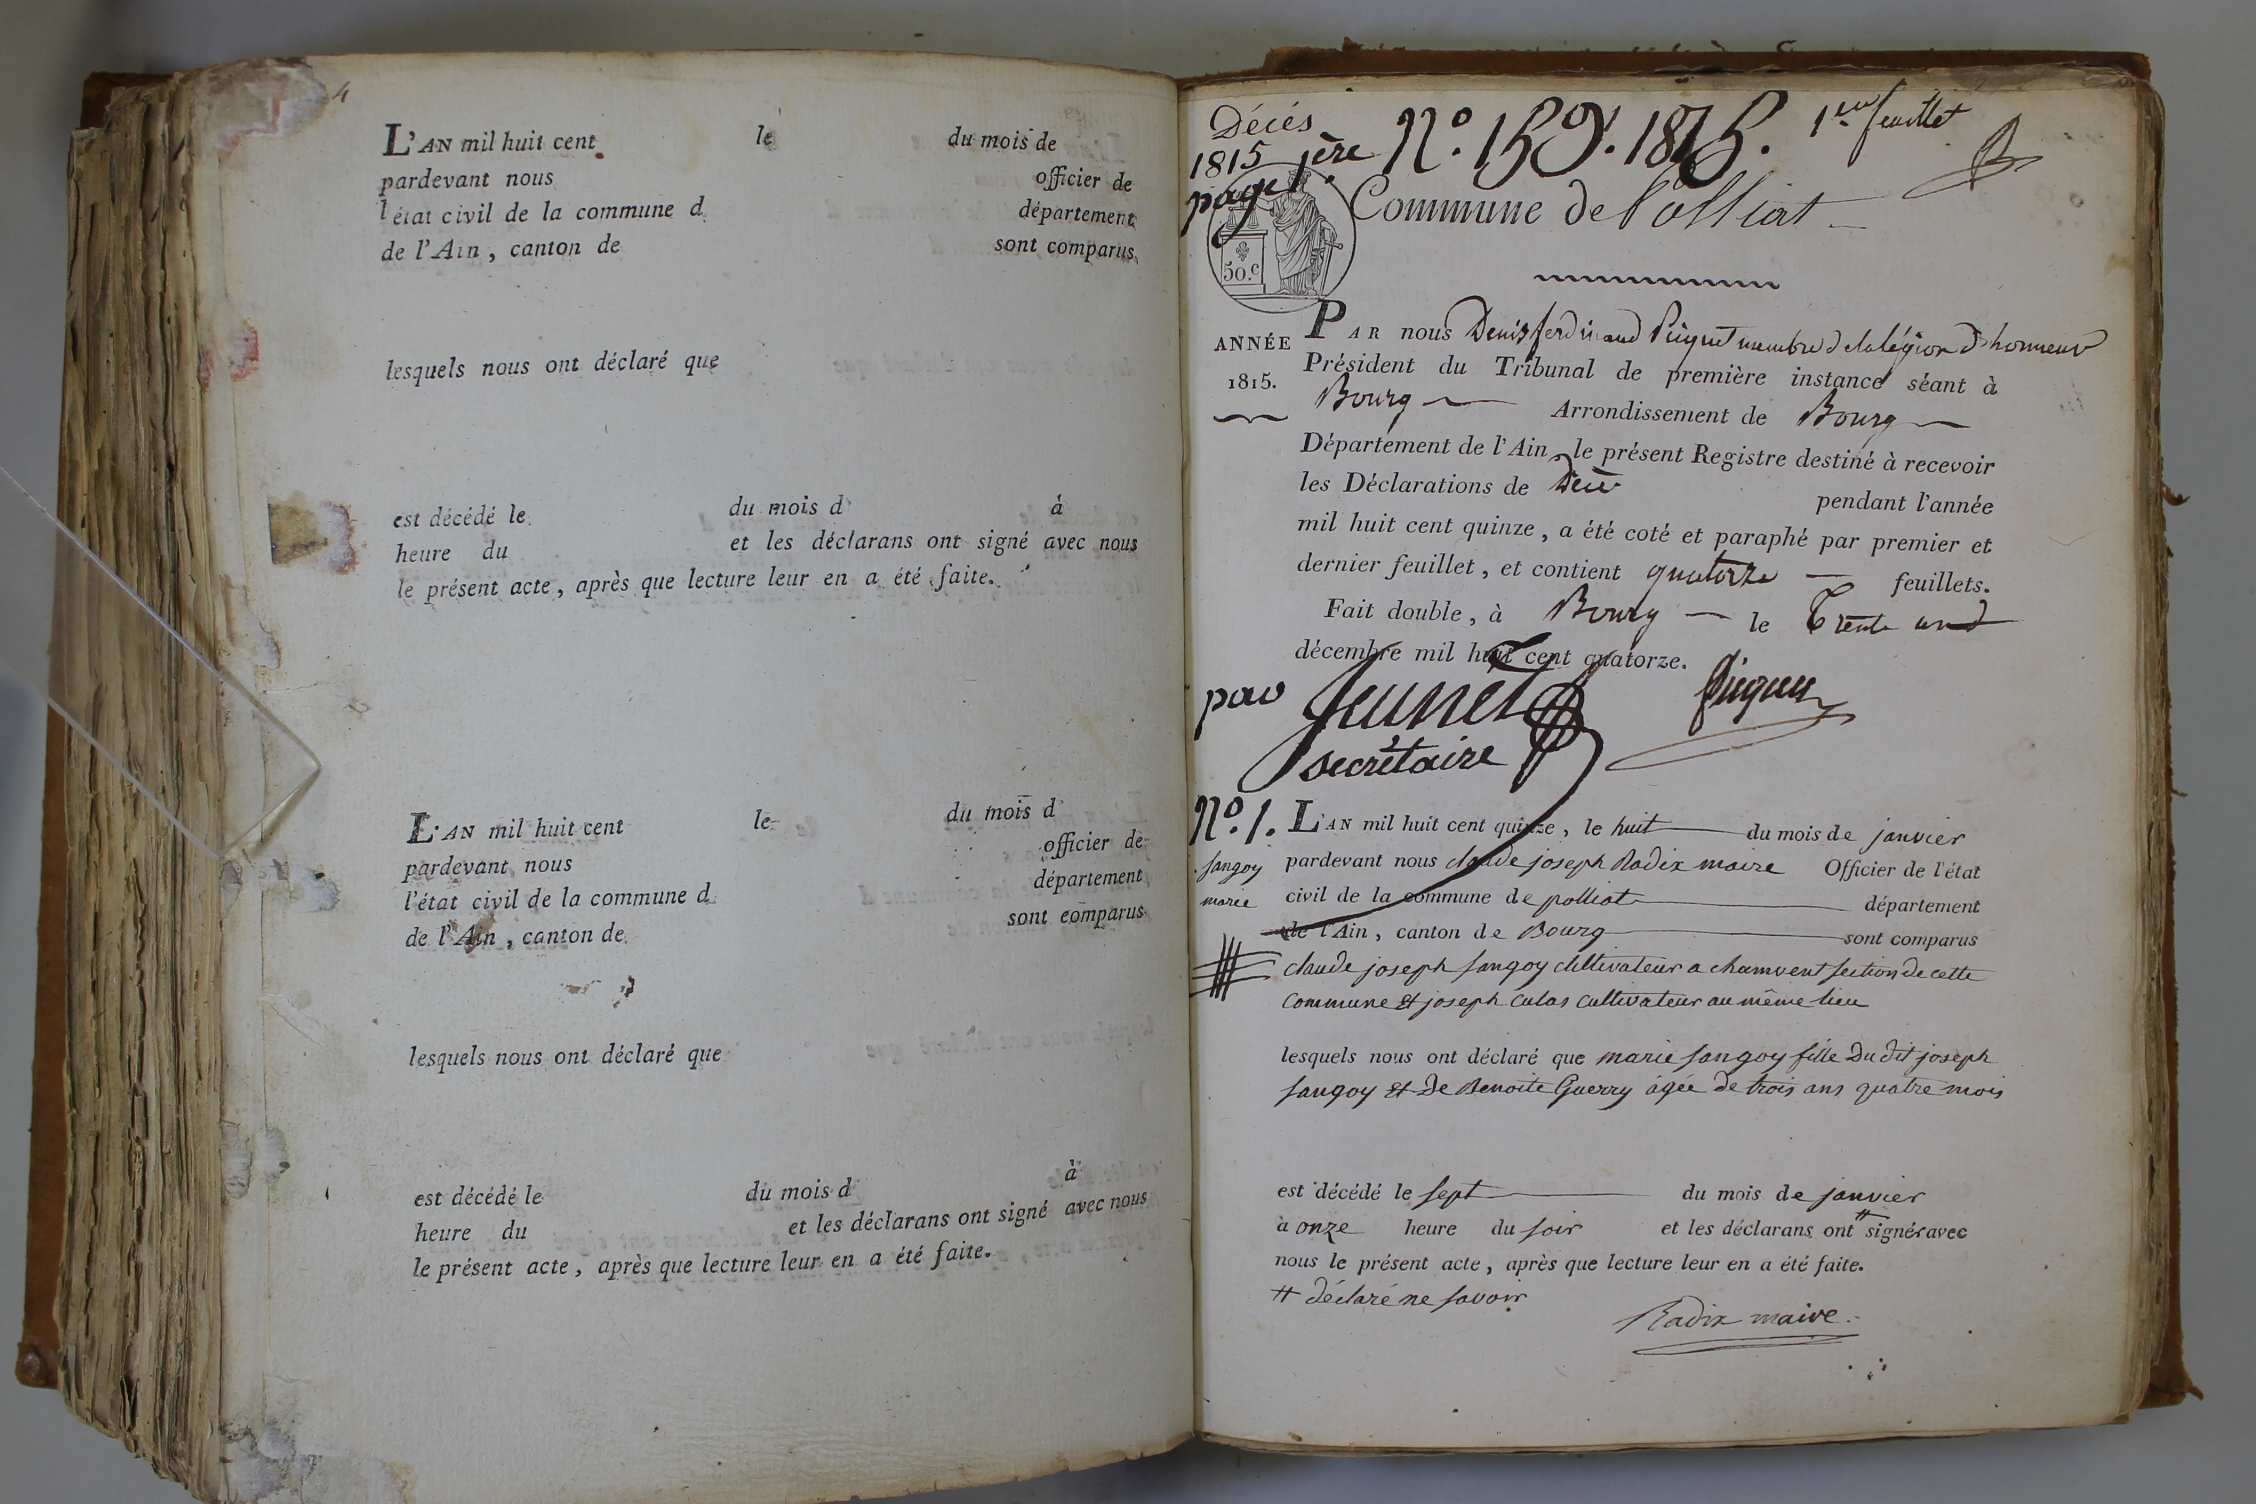 4
L'AN mil huit cent le du mois de
pardevant nous officier de
l'état civil de la commune d département
de l'Ain, canton de sont comparus
lesquels nous ont déclaré que
est décédé le du mois d à
heure du et les déclarans ont signé avec nous
le présent acte, après que lecture leur en a été faite.
L'AN mil huit cent le du mois d
pardevant nous officier de
l'état civil de la commune d département
de l'Ain, canton de sont comparus
lesquels nous ont déclaré que
est décédé le du mois d à
heure du et les déclarans ont signé avec nous
le présent acte, après que lecture leur en a été faite.
Décés
1815
page 1ère
N.º 159. 1815. 1er feuillet
Commune de Polliat
50.c
ANNÉE
1815.
PAR nous Denis ferdinand Piquet membre de la légion d'honneur
Président du Tribunal de première instance séant à
Bourg Arrondissement de Bourg
Département de l'Ain, le présent Registre destiné à recevoir
les Déclarations de Décès pendant l'année
mil huit cent quinze, a été coté et paraphé par premier et
dernier feuillet, et contient quatorze feuillets.
Fait double, à Bourg le Trente un
décembre mil huit cent quatorze.
par Jeunet Piquet
secrétaire
N.º 1.
sangoy
marie
L'AN mil huit cent quinze, le huit du mois de janvier
pardevant nous claude joseph Radix maire Officier de l'état
civil de la commune de polliat département
de l'Ain, canton de Bourg sont comparus
claude joseph sangoy cultivateur a chamvent section de cette
commune et joseph culas cultivateur au même lieu
lesquels nous ont déclaré que marie sangoy fille du dit joseph
sangoy et de Benoite Guerry âgée de trois ans quatre mois
est décédé le sept du mois de janvier
à onze heure du soir et les déclarans ont # signér avec
nous le présent acte, après que lecture leur en a été faite.
# déclaré ne savoir
Radix maire